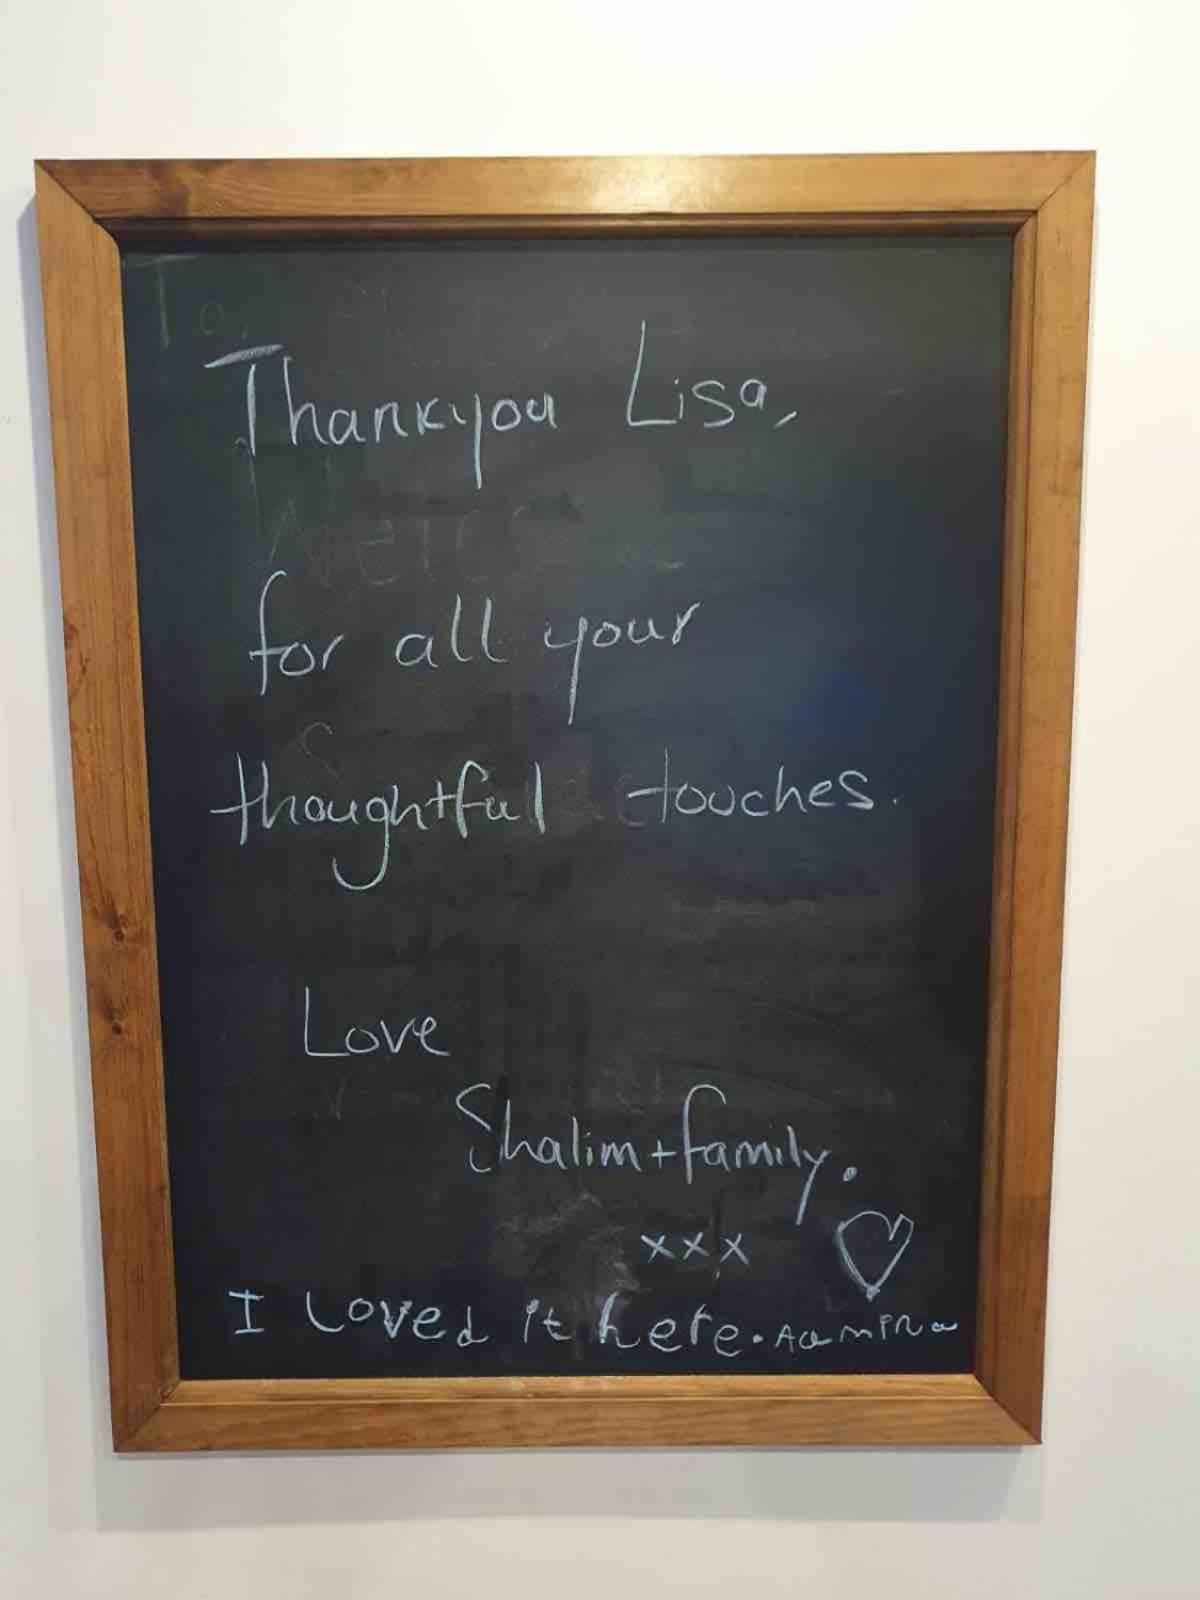 To,
Thankyou Lisa,
for all your
thoughtful touches.
Love
Shalim + family.
xxx
I Loved it here. Aamina